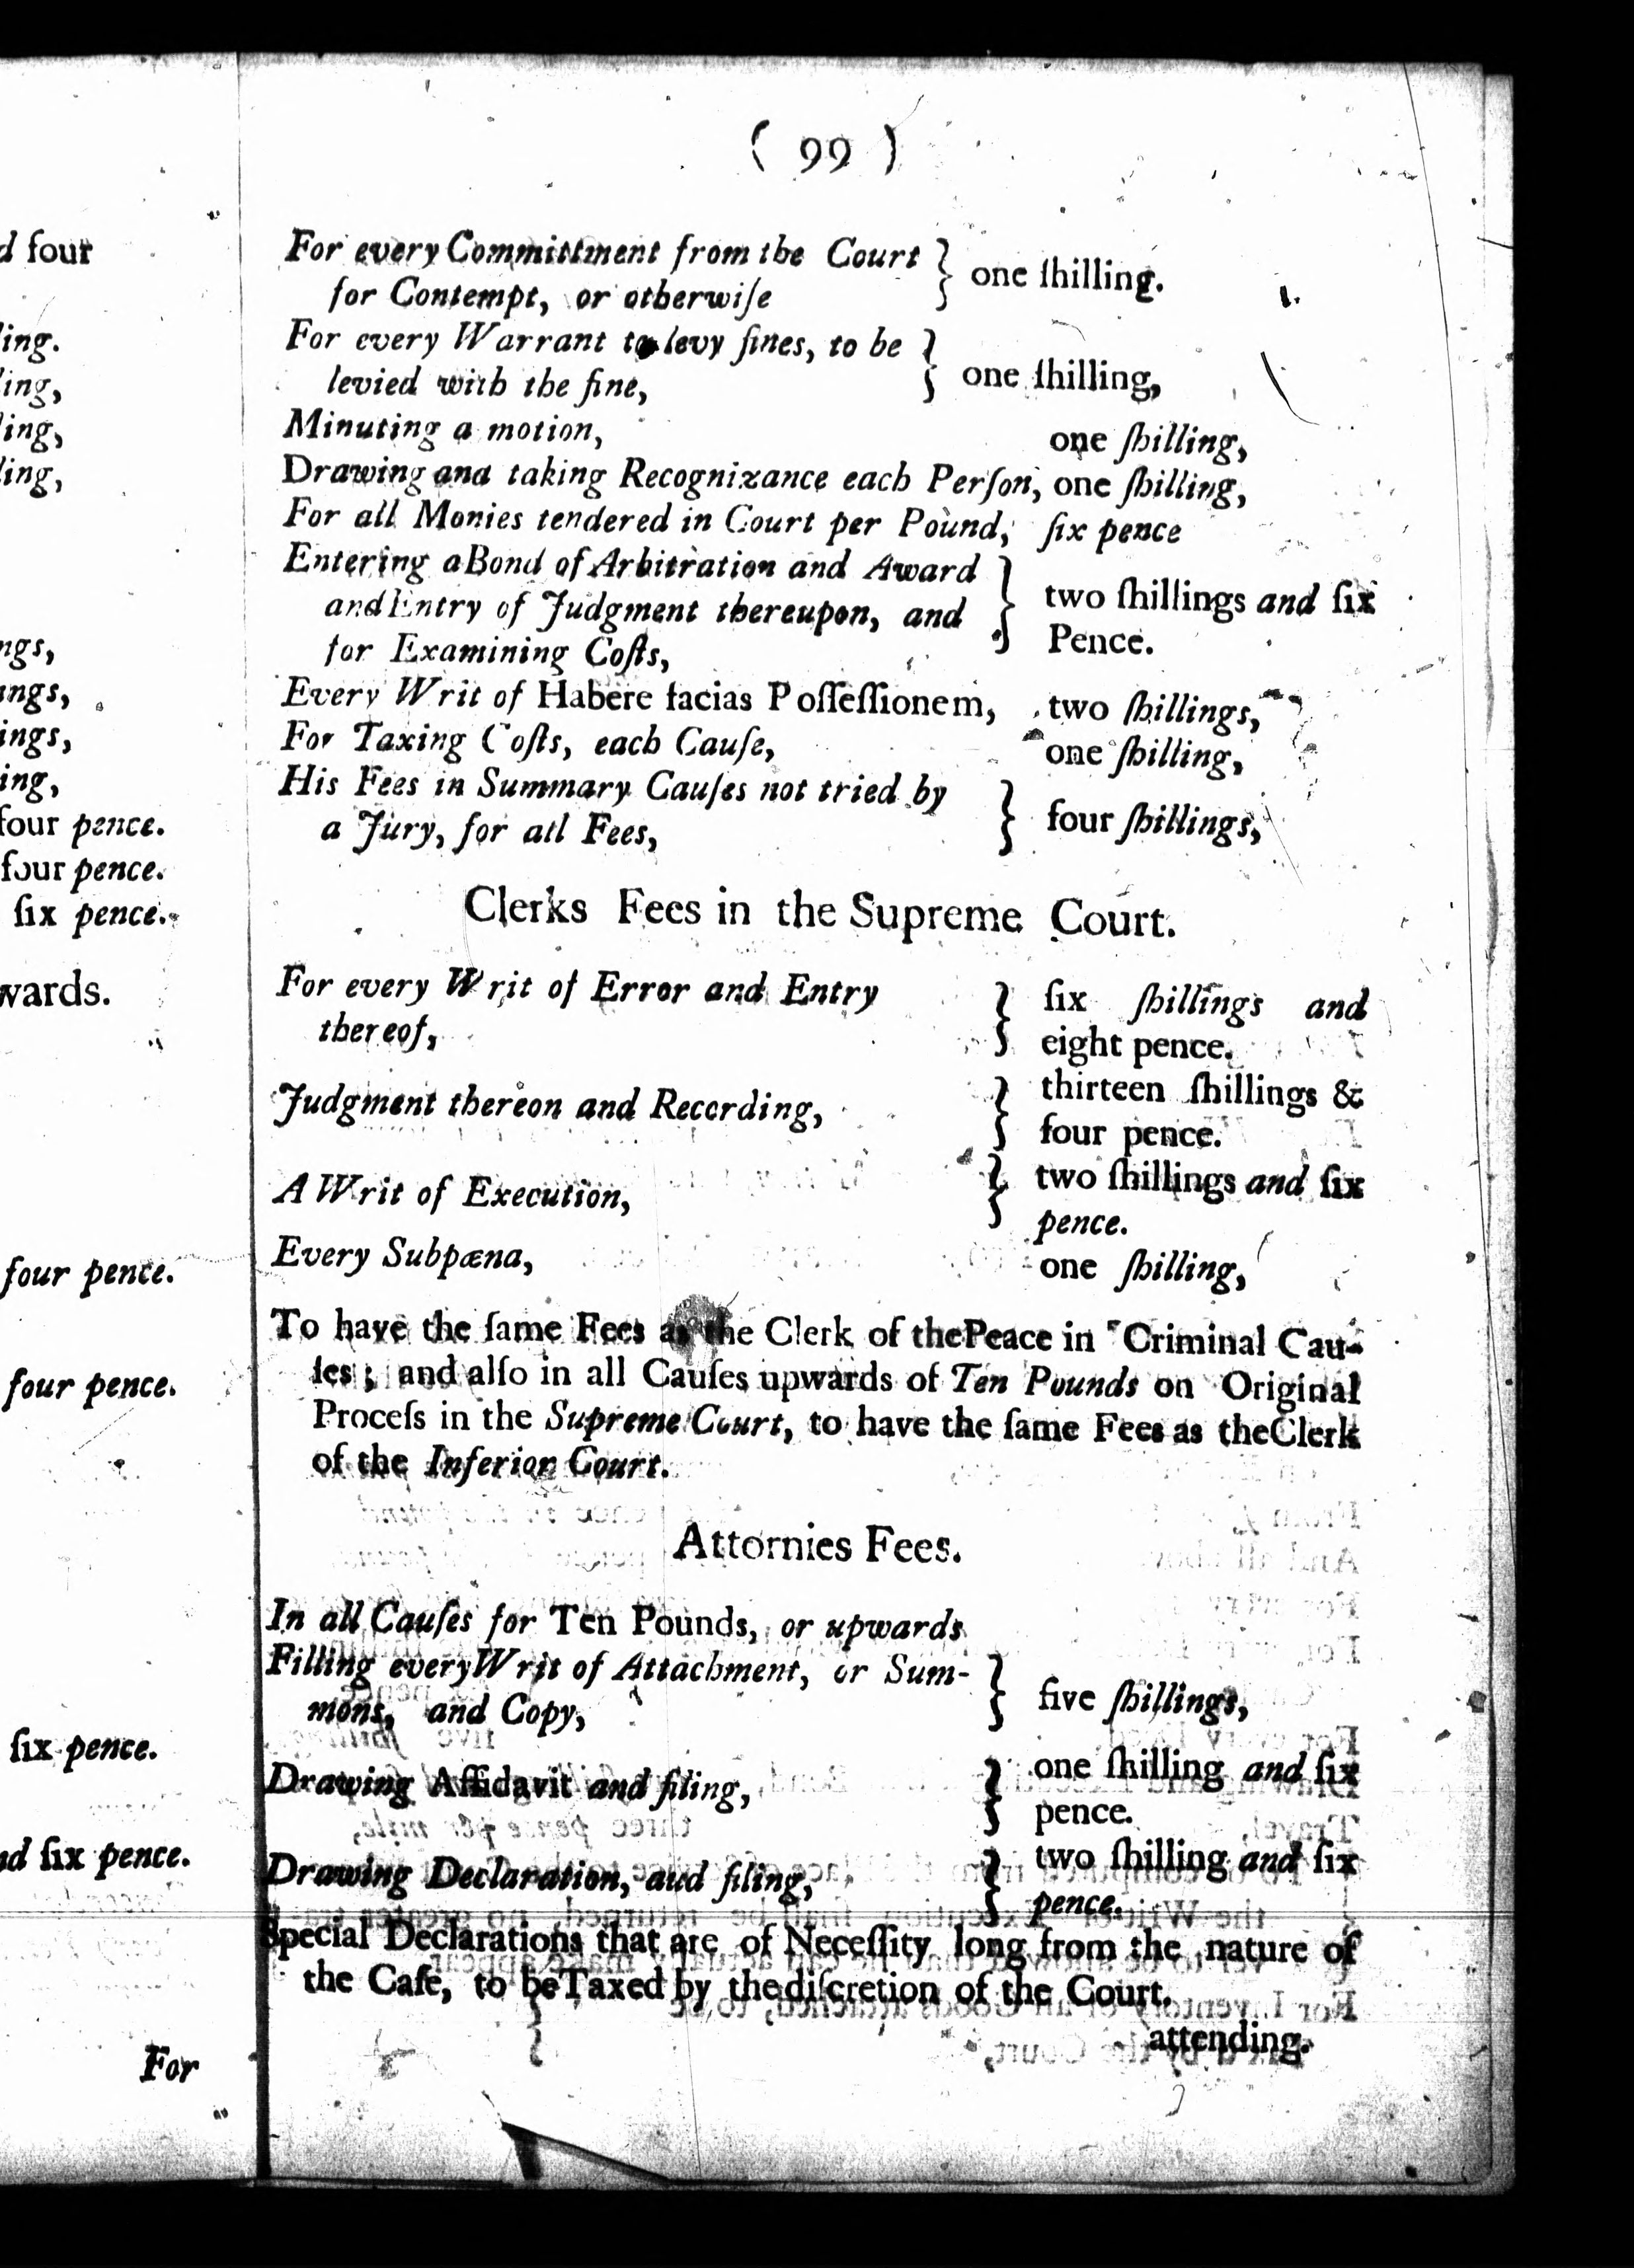 d four
ing.
ing,
ling,
ling,
ngs,
ings,
ings,
ing,
four pence.
four pence.
ſix pence.
wards.
four pence.
four pence.
ſix pence.
nd ſix pence.
For
( 99 )
For every Committment from the Court } one ſhilling.
for Contempt, or otherwiſe
For every Warrant to levy fines, to be } one ſhilling,
levied with the fine,
Minuting a motion, one ſhilling,
Drawing and taking Recognizance each Perſon, one ſhilling,
For all Monies tendered in Court per Pound, ſix pence
Entering a Bond of Arbitration and Award } two ſhillings and ſix
and Entry of Judgment thereupon, and Pence.
for Examining Coſts,
Every Writ of Habere facias Poſſeſſionem, two ſhillings,
For Taxing Coſts, each Cauſe, one ſhilling,
His Fees in Summary Cauſes not tried by } four ſhillings,
a Jury, for all Fees,
Clerks Fees in the Supreme Court.
For every Writ of Error and Entry } ſix ſhillings and
thereof, eight pence.
Judgment thereon and Recording, } thirteen ſhillings &
four pence.
A Writ of Execution, } two ſhillings and ſix
pence.
Every Subpæna, one ſhilling,
To have the ſame Fees as the Clerk of the Peace in Criminal Cau-
ſes; and alſo in all Cauſes upwards of Ten Pounds on Original
Proceſs in the Supreme Court, to have the ſame Fees as the Clerk
of the Inferior Court.
Attornies Fees.
In all Cauſes for Ten Pounds, or upwards
Filling every Writ of Attachment, or Sum- } five ſhillings,
mons, and Copy,
Drawing Affidavit and filing, } one ſhilling and ſix
pence.
Drawing Declaration, aud filing, } two ſhilling and ſix
pence.
Special Declarations that are of Neceſſity long from the nature of
the Caſe, to be Taxed by the diſcretion of the Court.
attending.